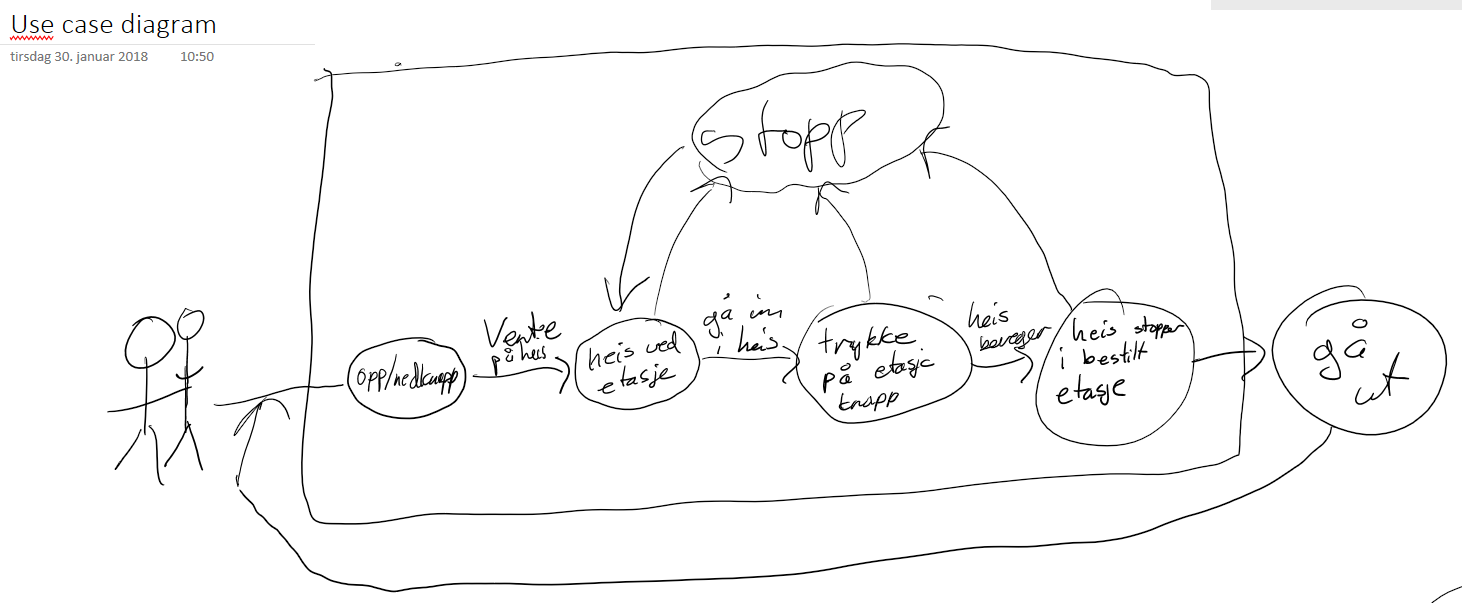 Use case diagram
tirsdag 30. januar 2018 10:50
stopp
opp/nedknapp
Vente
på heis
heis ved
etasje
gå inn
i heis
trykke
på etasje
knapp
heis
beveger
heis stopper
i bestilt
etasje
gå
ut